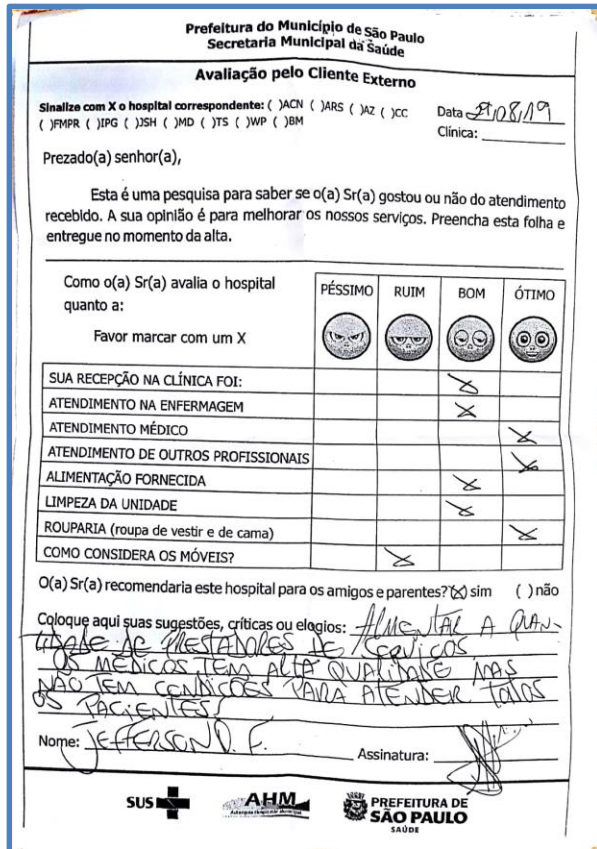 Prefeitura do Município de São Paulo
Secretaria Municipal da Saúde
Avaliação pelo Cliente Externo
Sinalize com X o hospital correspondente: ( )ACN ( )ARS ( )AZ ( )CC
( )FMPR ( )IPG ( )JSH ( )MD ( )TS ( )WP ( )BM
Data 21/08/19
Clínica:
Prezado(a) senhor(a),
Esta é uma pesquisa para saber se o(a) Sr(a) gostou ou não do atendimento
recebido. A sua opinião é para melhorar os nossos serviços. Preencha esta folha e
entregue no momento da alta.
Como o(a) Sr(a) avalia o hospital
quanto a:
Favor marcar com um X
PÉSSIMO RUIM BOM ÓTIMO
SUA RECEPÇÃO NA CLÍNICA FOI: X
ATENDIMENTO NA ENFERMAGEM X
ATENDIMENTO MÉDICO X
ATENDIMENTO DE OUTROS PROFISSIONAIS X
ALIMENTAÇÃO FORNECIDA X
LIMPEZA DA UNIDADE X
ROUPARIA (roupa de vestir e de cama) X
COMO CONSIDERA OS MÓVEIS? X
O(a) Sr(a) recomendaria este hospital para os amigos e parentes? (X) sim ( ) não
Coloque aqui suas sugestões, críticas ou elogios: AUMENTAR A QUAN-
TIDADE DE PRESTADORES DE SERVIÇOS
OS MÉDICOS TEM ALTA QUALIDADE MAS
NÃO TEM CONDIÇÕES PARA ATENDER TODOS
OS PACIENTES!
Nome: JEFFERSON D. F.
Assinatura:
SUS
AHM
Autarquia Hospitalar Municipal
PREFEITURA DE
SÃO PAULO
SAÚDE